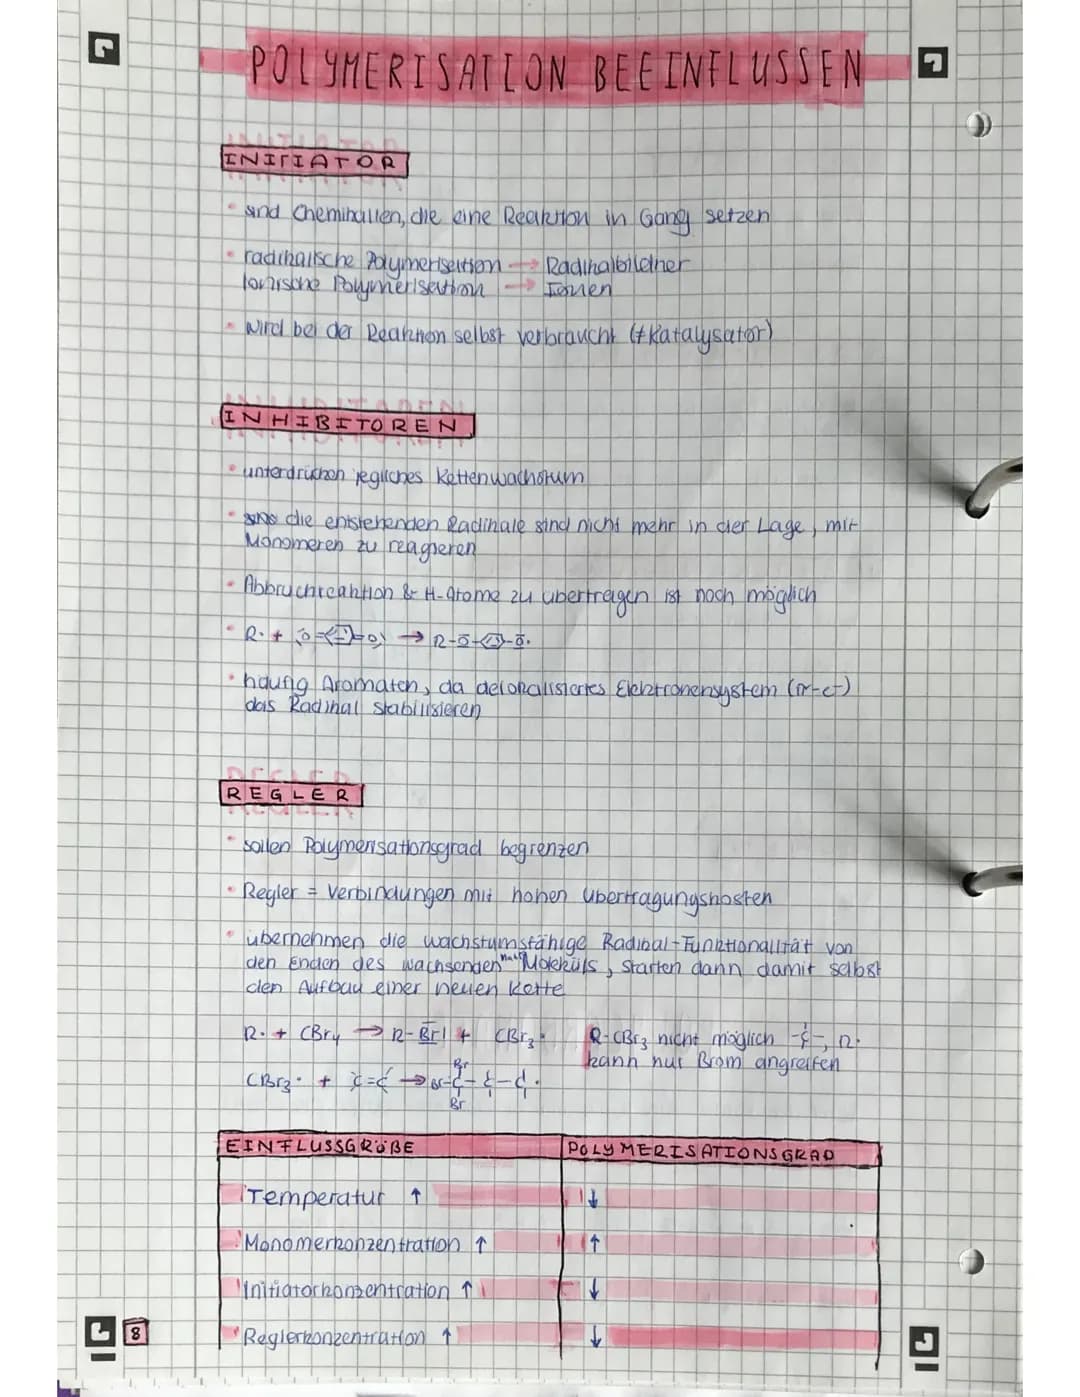 POLYMERISATION BEEINFLUSSEN
INITIATOR
• sind Chemikalien, die eine Reaktion in Gang setzen
• radikalische Polymerisation → Radikalbildner
Ionische Polymerisation → Ionen
• wird bei der Reaktion selbst verbraucht (≠Katalysator)
INHIBITOREN
• unterdrücken jegliches Kettenwachstum
• die entstehenden Radikale sind nicht mehr in der Lage, mit
Monomeren zu reagieren
• Abbruchreaktion & H-Atome zu übertragen ist noch möglich
• R· + O= =O → R-O- -O·
• häufig Aromaten, da delokalisiertes Elektronensystem (π-e⁻)
das Radikal stabilisieren
REGLER
• sollen Polymerisationsgrad begrenzen
• Regler = Verbindungen mit hohen Übertragungskosten
• übernehmen die wachstumsfähige Radikal-Funktionalität von
den Enden des wachsenden Moleküls, starten dann damit selbst
den Aufbau einer neuen Kette
R· + CBr4 → R-Br| + CBr3· R-CBr3 nicht möglich -C-, R·
kann nur Brom angreifen
Br
CBr3· + C=C → Br-C-C-C·
Br
EINFLUSSGRÖßE POLYMERISATIONSGRAD
Temperatur ↑ ↓
Monomerkonzentration ↑ ↑
Initiatorkonzentration ↑ ↓
Reglerkonzentration ↑ ↓
8